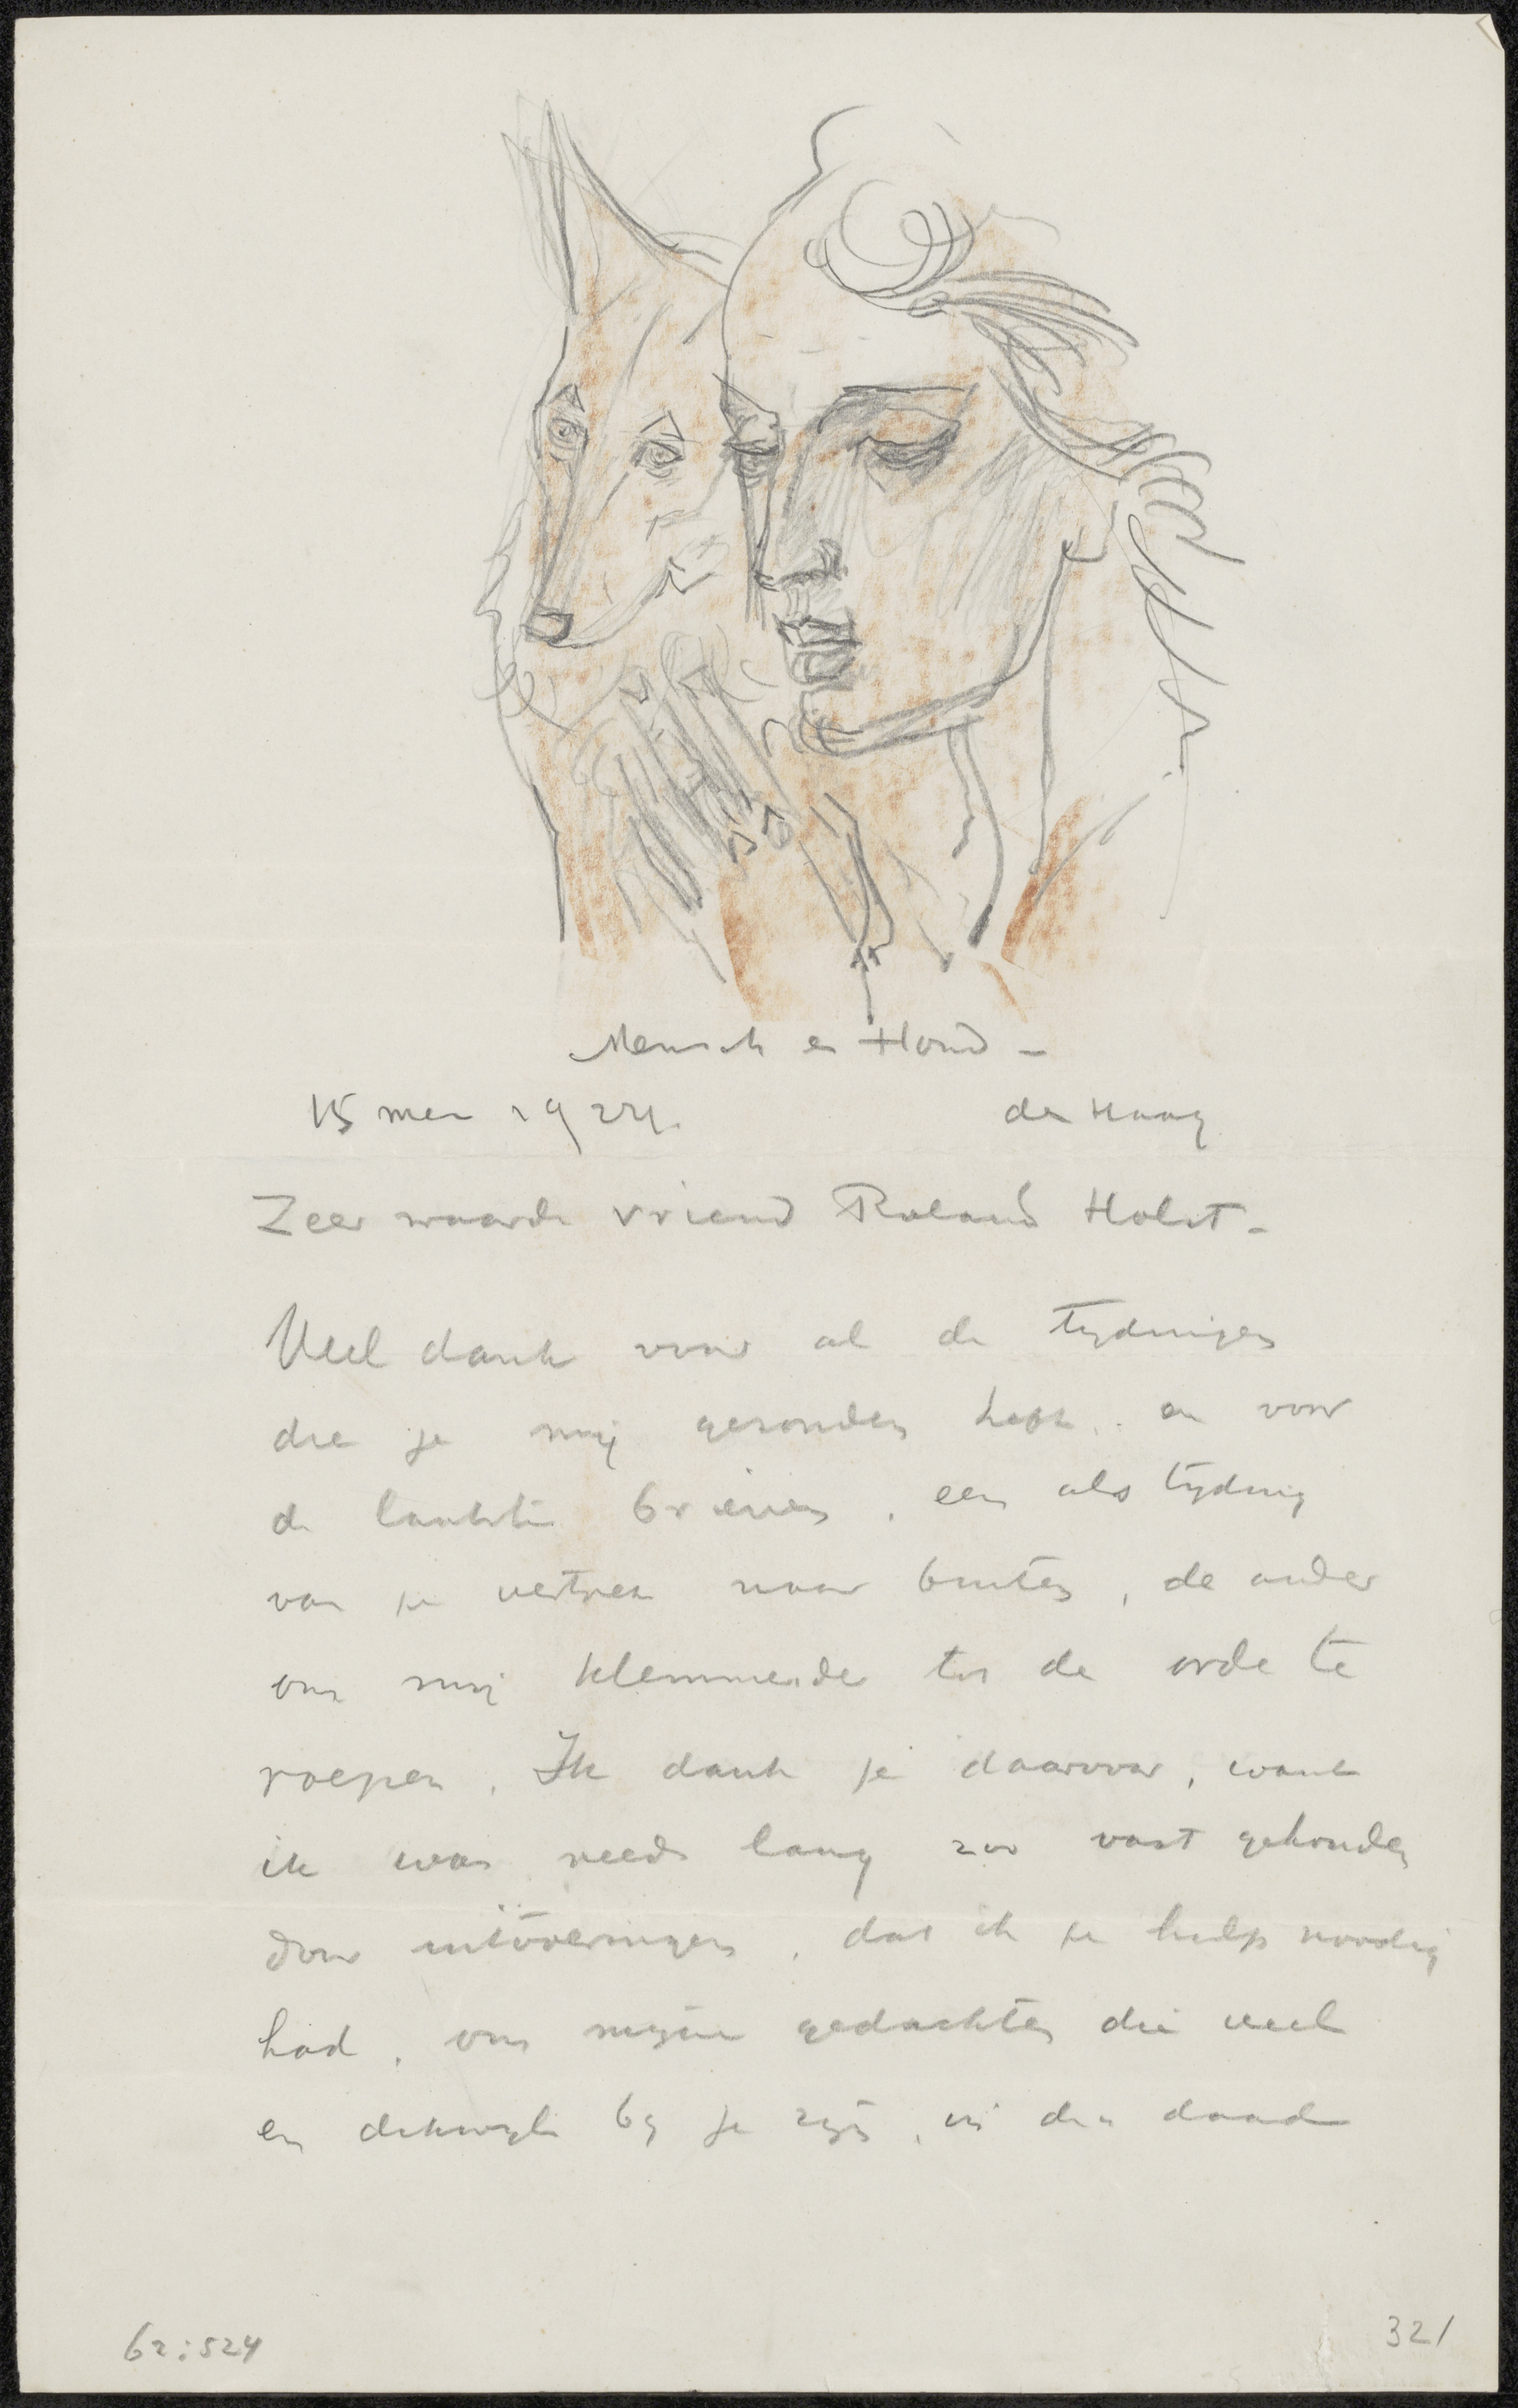 Mensch en Hond –
15 mei 1924. den Haag
Zeer waarde vriend Roland Holst –
Veel dank voor al de tydingen
die je mij gezonden hebt, en voor
de laatste brieven, een als tyding
van je vertrek naar buiten, de ander
om mij klemmender tot de orde te
roepen. Ik dank je daarvoor, want
ik was reeds lang zoo vast gehouden
door uitvoeringen, dat ik je hulp noodig
had, om mijne gedachten die veel
en dikwyls by je zyn, in den daad
62:524 321